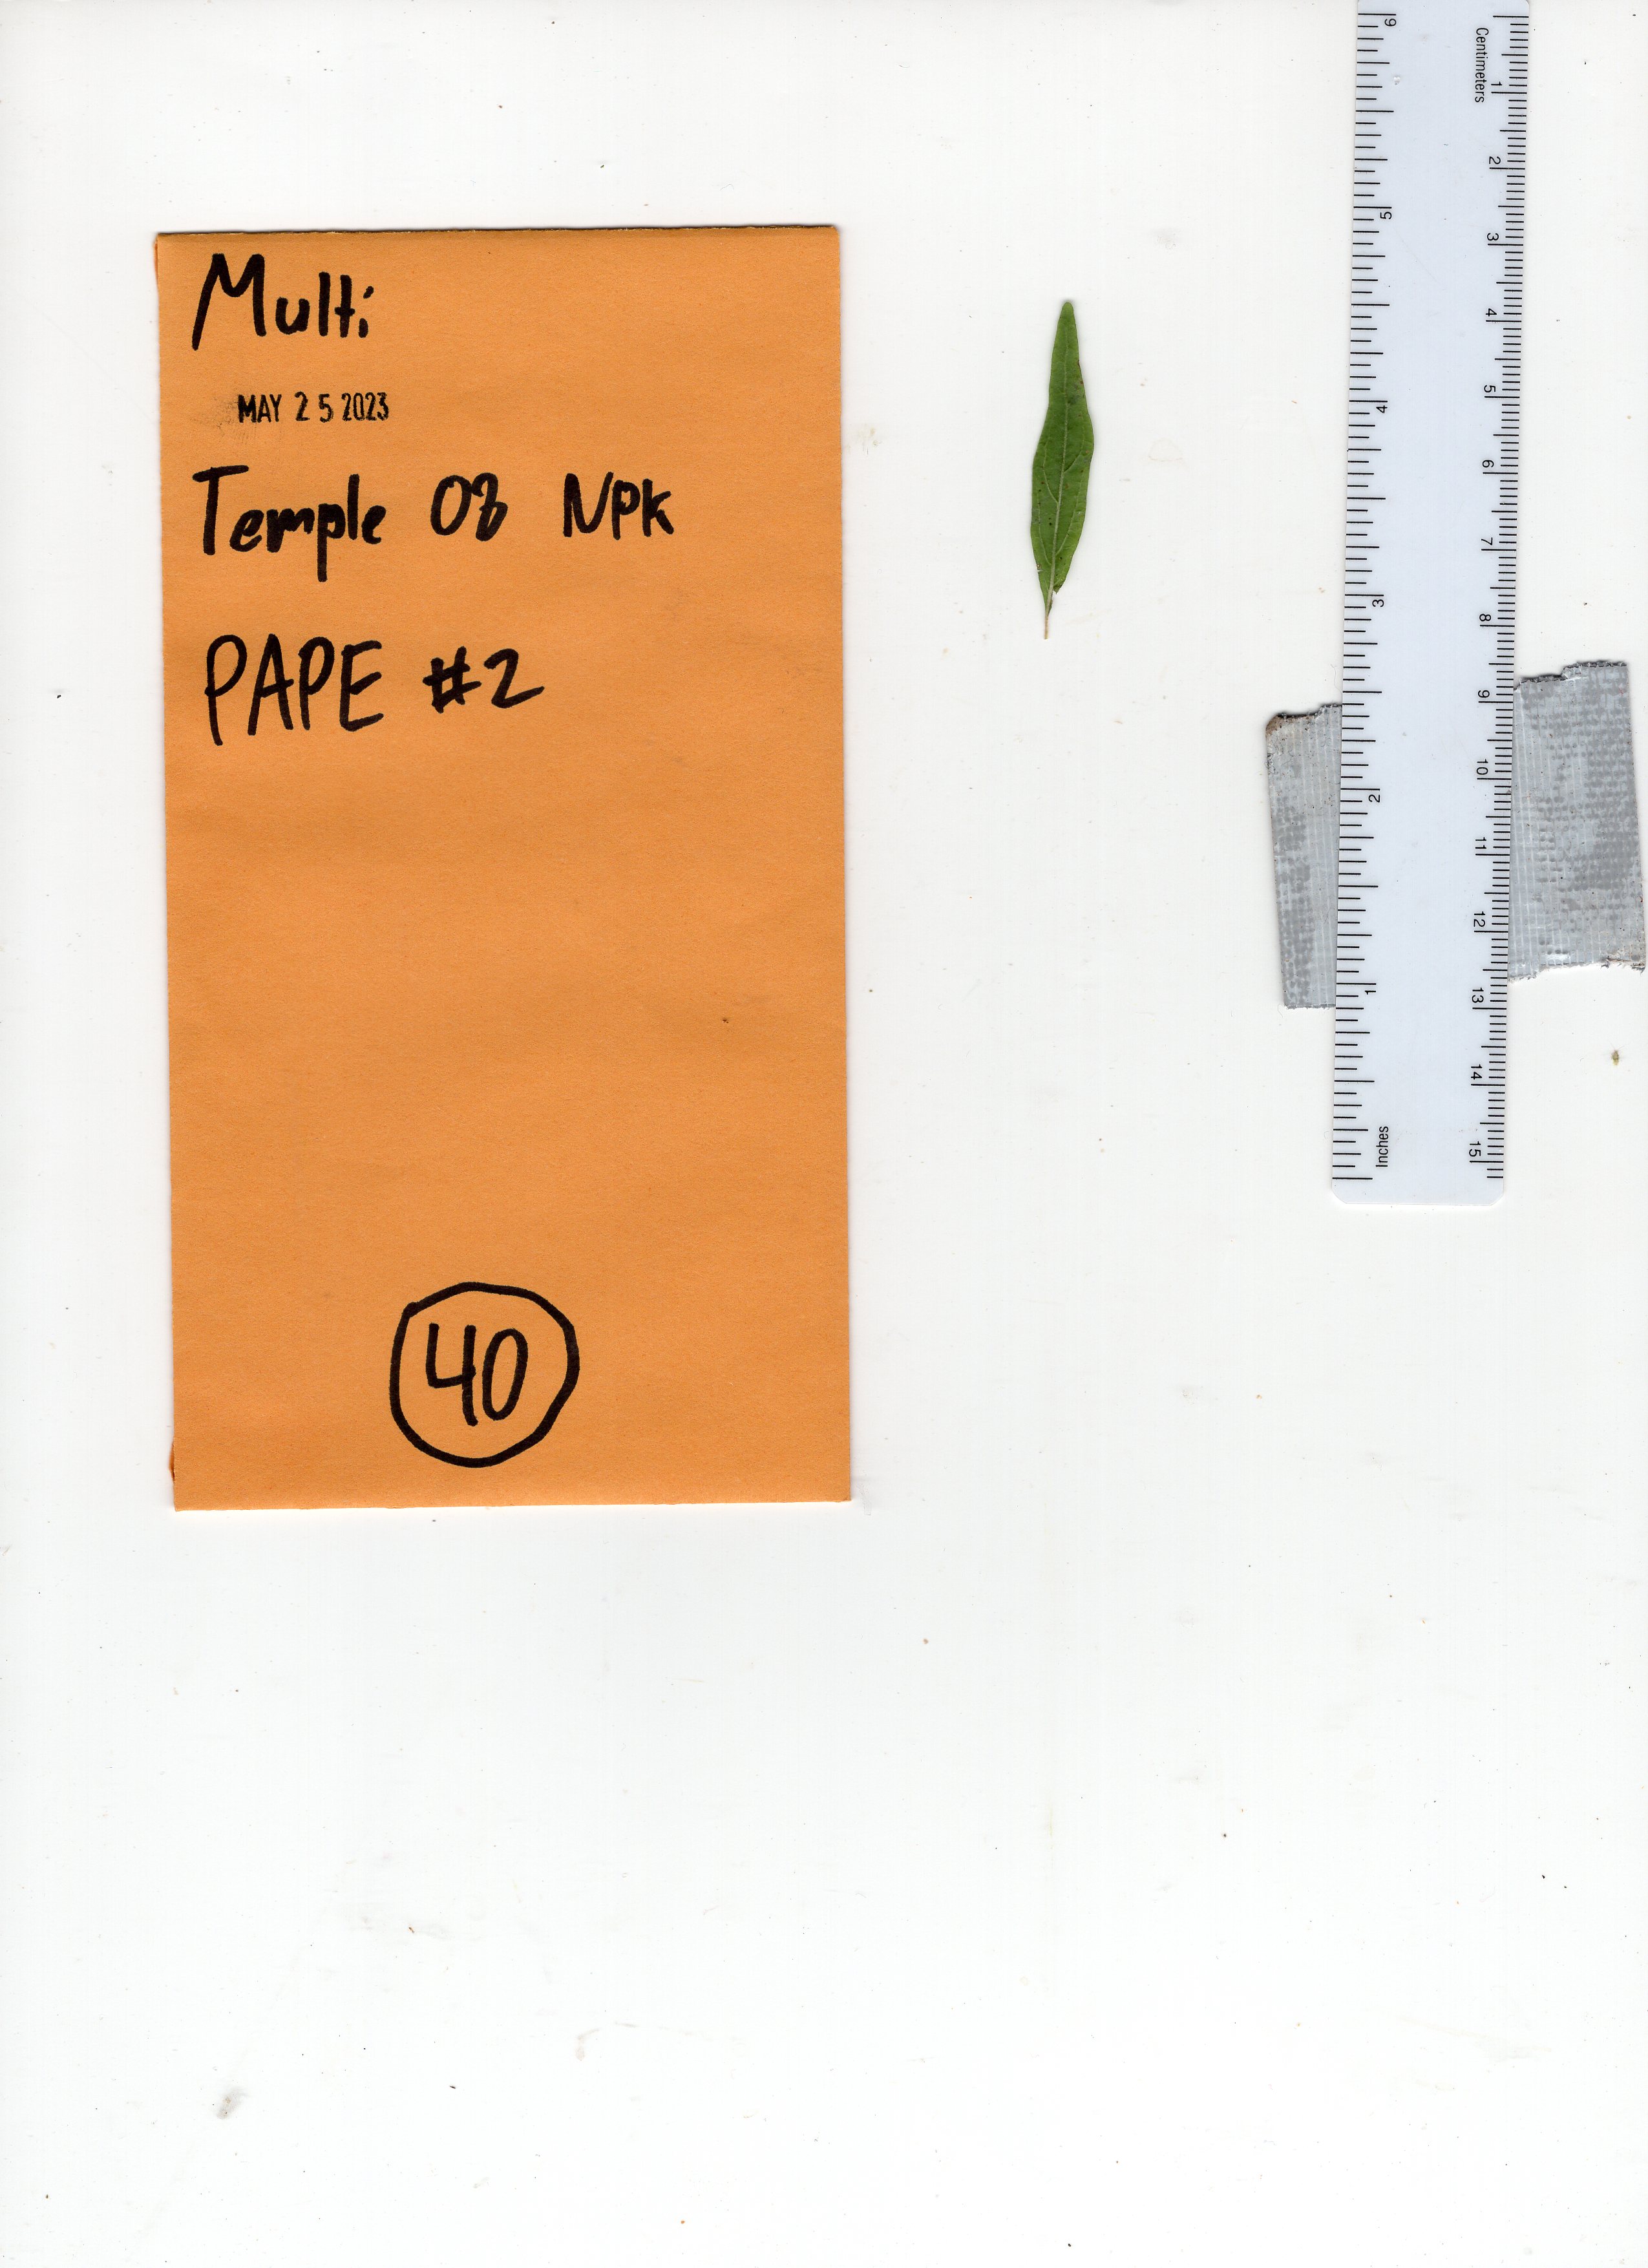 Multi
MAY 25 2023
Temple 08 NPK
PAPE #2
40
Centimeters
1
2
3
4
5
6
7
8
9
10
11
12
13
14
15
6
5
4
3
2
1
Inches